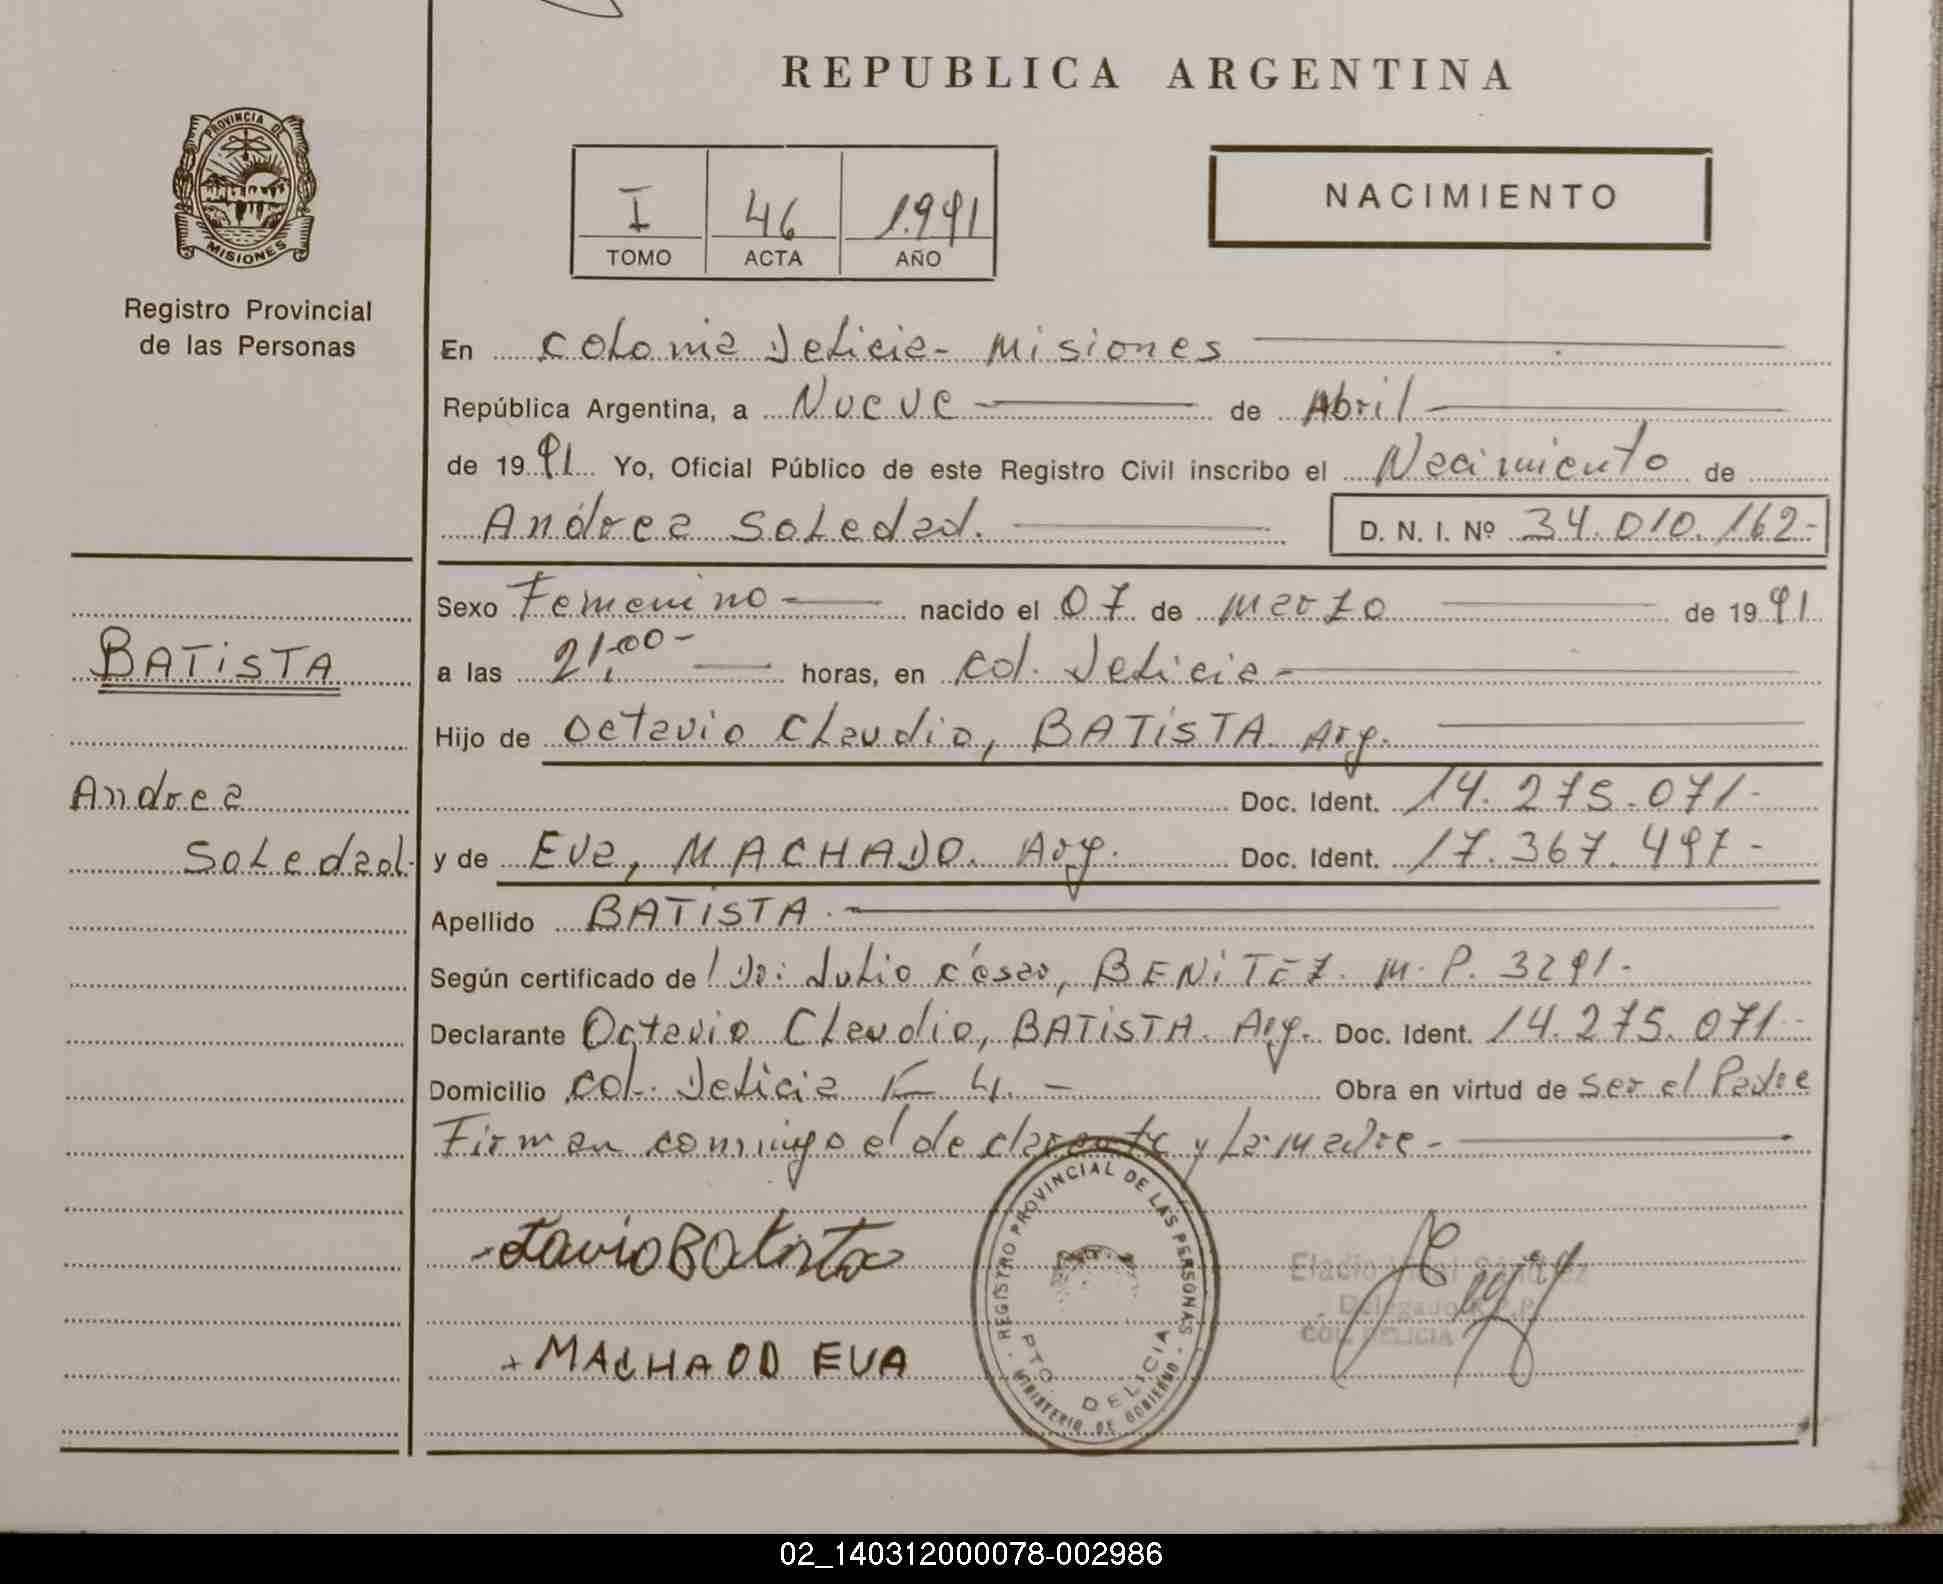 REPUBLICA ARGENTINA
PROVINCIA DE
MISIONES
Registro Provincial
de las Personas
I 46 1.991
TOMO ACTA AÑO
NACIMIENTO
En Colonia Delicia - Misiones
República Argentina, a Nueve de Abril
de 1991 Yo, Oficial Público de este Registro Civil inscribo el Nacimiento de
Andrea Soledad. D. N. I. Nº 34.010.162-
Sexo Femenino nacido el 07 de marzo de 1991
BATISTA
a las 21,00- horas, en Col. Delicia -
Hijo de Octavio Claudio, BATISTA. Arg.
Andrea
Doc. Ident. 14.275.071-
Soledad-
y de Eva, MACHADO. Arg. Doc. Ident. 17.367.497-
Apellido BATISTA.
Según certificado de Dr: Julio César, BENITEZ. M.P. 3291-
Declarante Octavio Claudio, BATISTA. Arg. Doc. Ident. 14.275.071-
Domicilio Col. Delicia K 4. - Obra en virtud de ser el Padre
Firman conmigo el declarante y la madre-
REGISTRO PROVINCIAL DE LAS PERSONAS
MINISTERIO DE GOBIERNO
PTO. DELICIA
tavio BAtista
Eladio
Delegado R.P.P.
COL. DELICIA
+ MACHAOD EVA
02_140312000078-002986